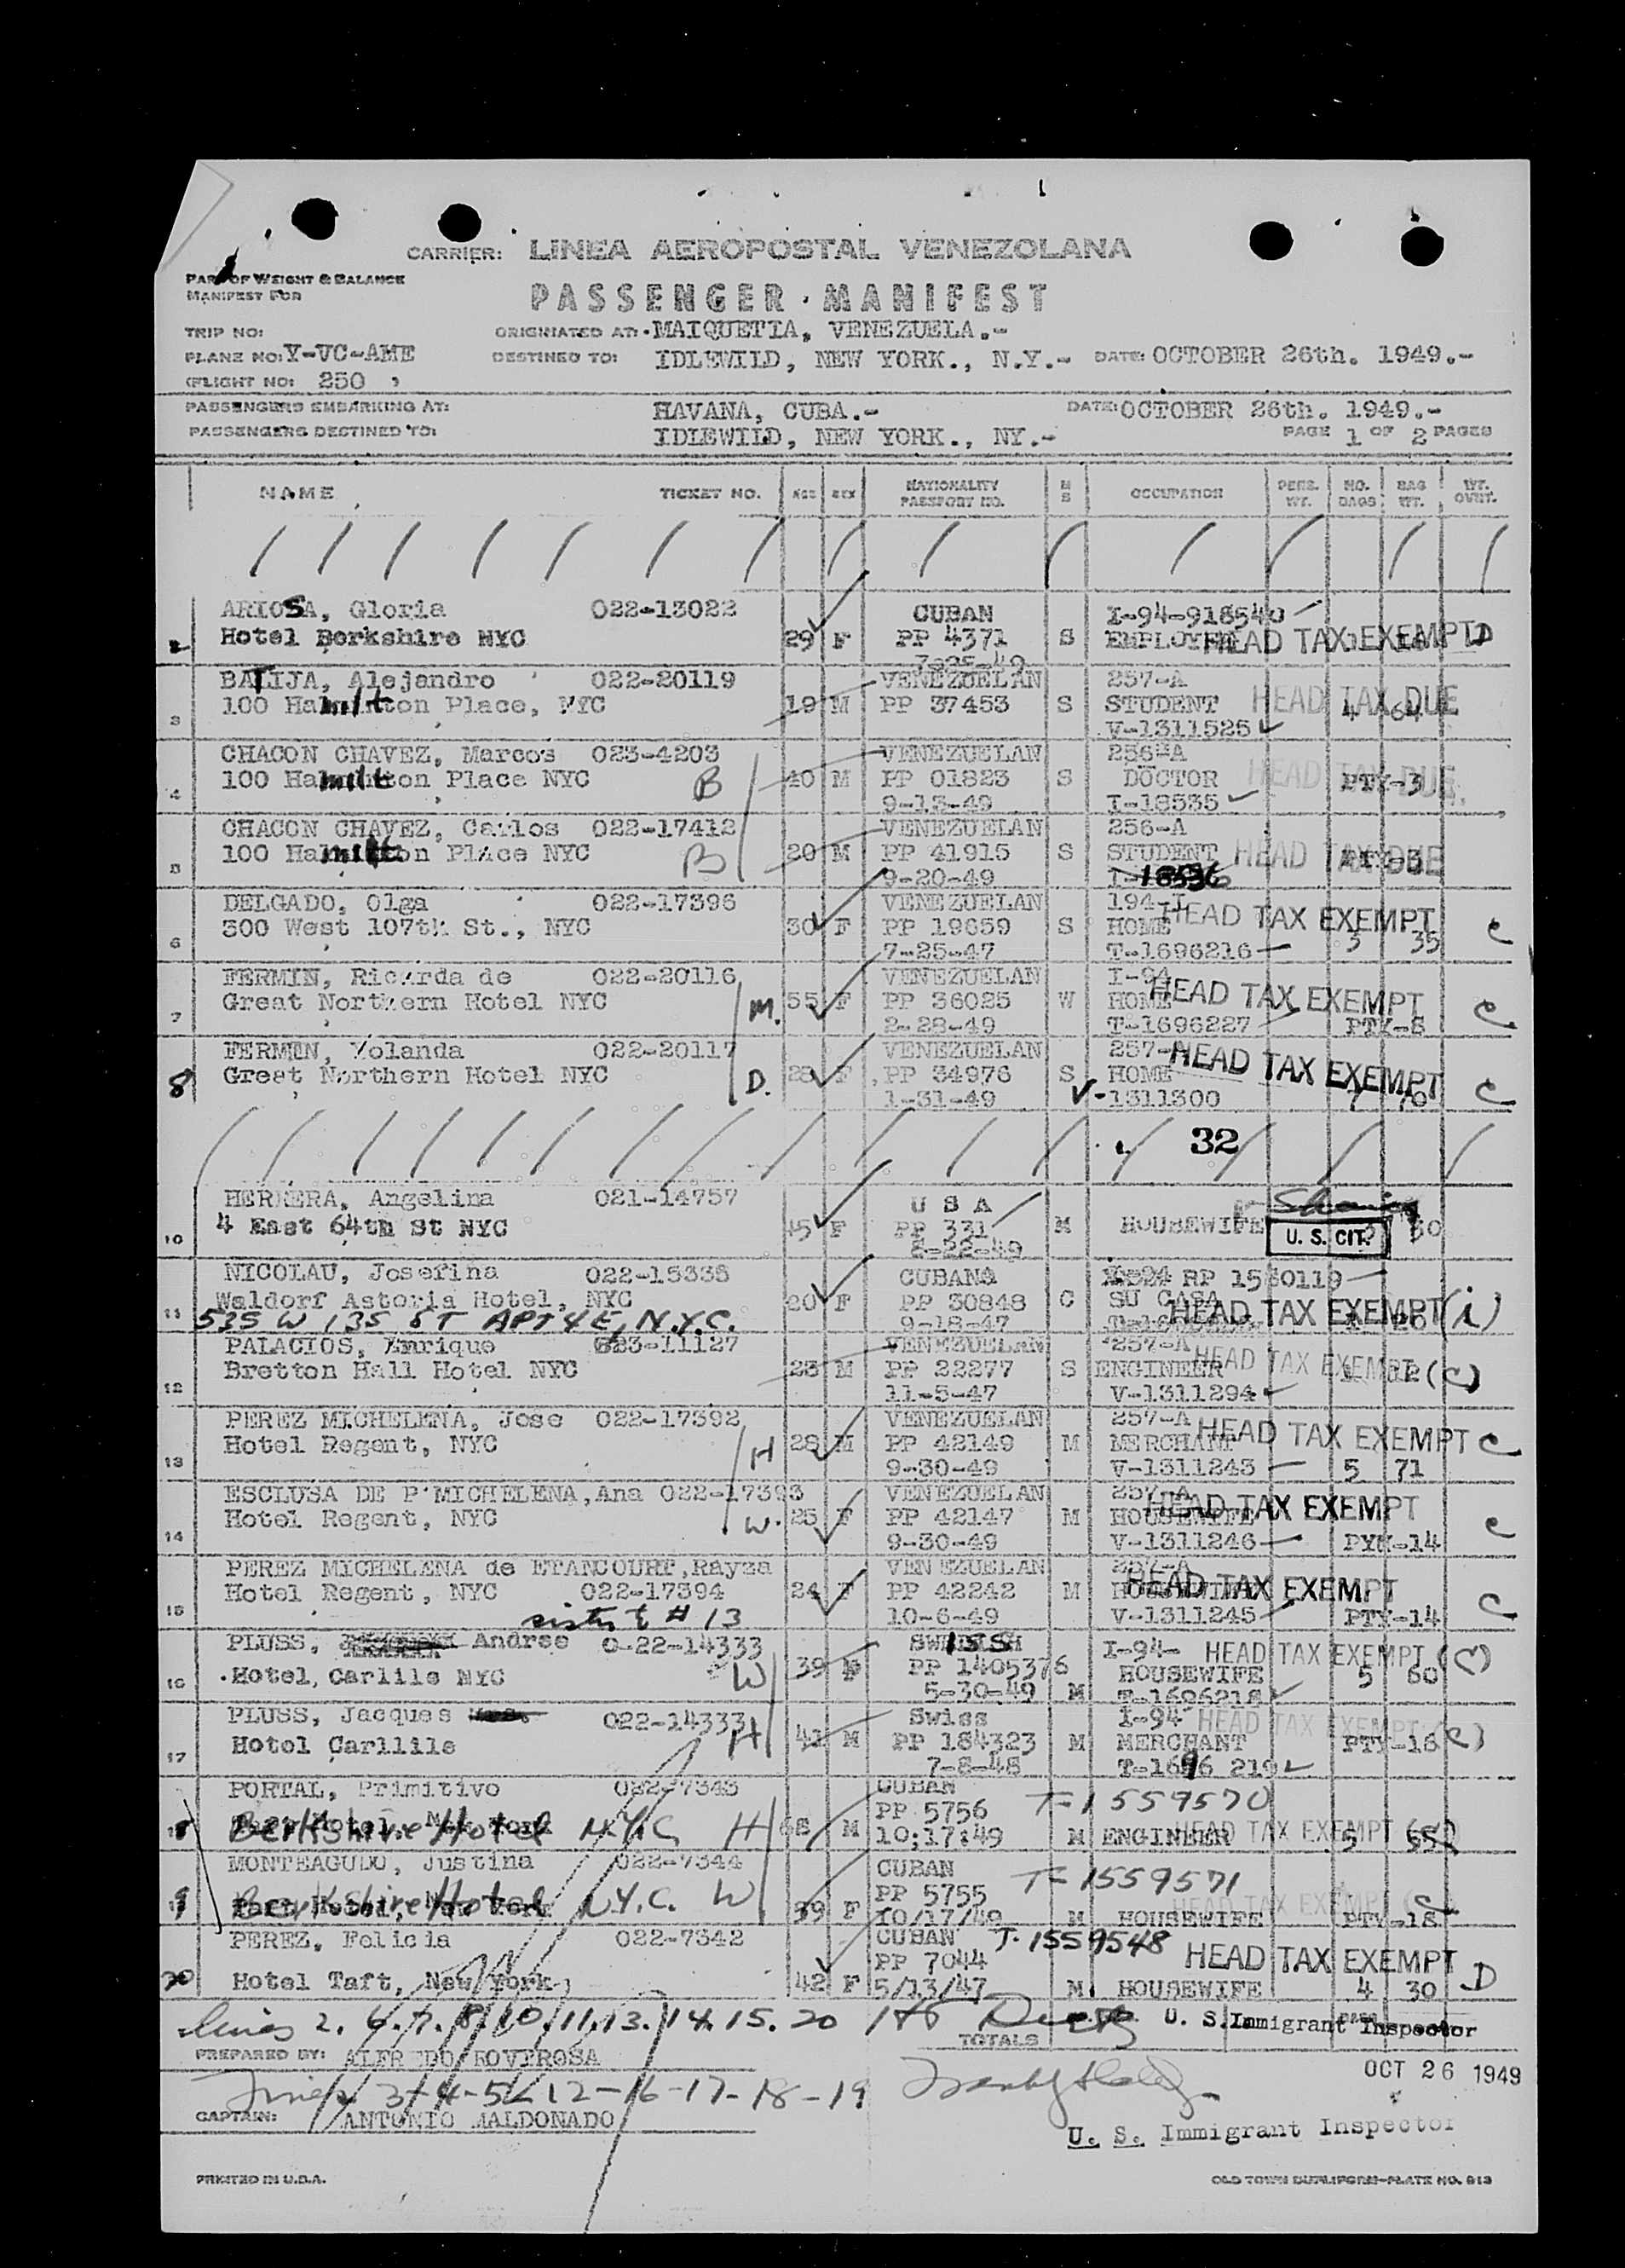 CARRIER: LINEA AEROPOSTAL VENEZOLANA
PART OF WEIGHT & BALANCE
MANIFEST FOR
PASSENGER MANIFEST
TRIP NO:
ORIGINATED AT: MAIQUETIA, VENEZUELA.-
PLANE NO: Y-VC-AME
DESTINED TO: IDLEWILD, NEW YORK., N.Y.- DATE: OCTOBER 26th. 1949.-
(FLIGHT NO: 250 )
PASSENGERS EMBARKING AT: HAVANA, CUBA.- DATE: OCTOBER 26th. 1949.-
PASSENGERS DESTINED TO: IDLEWILD, NEW YORK., NY.- PAGE 1 OF 2 PAGES
NAME TICKET NO. AGE SEX NATIONALITY PASSPORT NO. M S OCCUPATION PERS. WT. NO. BAGS BAG WT. WT. OVRT.
ARIOSA, Gloria 022-13022 CUBAN I-94-918540
2 Hotel Berkshire NYC 29 F PP 4371 S EMPLOYEE HEAD TAX EXEMPT D
7-25-49
BATIJA, Alejandro 022-20119 VENEZUELAN 257-A
3 100 Hamilton Place, NYC 19 M PP 37453 S STUDENT HEAD TAX DUE 4 64
V-1311525
CHACON CHAVEZ, Marcos 023-4203 VENEZUELAN 256-A
4 100 Hamilton Place NYC B 40 M PP 01823 S DOCTOR HEAD TAX DUE PTY-3
9-13-49 I-18535
CHACON CHAVEZ, Carlos 022-17412 VENEZUELAN 256-A
5 100 Hamilton Place NYC B 20 M PP 41915 S STUDENT HEAD TAX DUE PTY-3
9-20-49 I-18536
DELGADO, Olga 022-17396 VENEZUELAN 194-I
6 300 West 107th St., NYC 30 F PP 19659 S HOME HEAD TAX EXEMPT 3 35 C
7-25-47 T-1696216
FERMIN, Ricarda de 022-20116 VENEZUELAN I-94
7 Great Northern Hotel NYC M. 55 F PP 36025 W HOME HEAD TAX EXEMPT C
2-28-49 T-1696227 PTY-8
FERMIN, Yolanda 022-20117 VENEZUELAN 257-A
8 Great Northern Hotel NYC D. 28 F PP 34976 S HOME HEAD TAX EXEMPT C
1-31-49 V-1311300 7 70
32
HERRERA, Angelina 021-14757 U S A
10 4 East 64th St NYC 45 F PP 331 M HOUSEWIFE U. S. CIT. 30
8-22-49
NICOLAU, Josefina 022-15335 CUBANO RP 1530119
11 Waldorf Astoria Hotel, NYC 20 F PP 30848 C SU CASA HEAD TAX EXEMPT (i)
535 W 135 ST APT 4E, N.Y.C. 9-18-47
PALACIOS, Enrique 023-11127 VENEZUELAN 257-A
12 Bretton Hall Hotel NYC 23 M PP 22277 S ENGINEER HEAD TAX EXEMPT (C)
11-5-47 V-1311294
PEREZ MICHELENA, Jose 022-17392 VENEZUELAN 257-A
13 Hotel Regent, NYC H 28 M PP 42149 M MERCHANT HEAD TAX EXEMPT C
9-30-49 V-1311243 5 71
ESCLUSA DE P'MICHELENA, Ana 022-17393 VENEZUELAN 257-A
14 Hotel Regent, NYC W. 25 F PP 42147 M HOUSEWIFE HEAD TAX EXEMPT C
9-30-49 V-1311246 PYK-14
PEREZ MICHELENA de ETANCOURT, Rayza VENEZUELAN 257-A
15 Hotel Regent, NYC 022-17394 24 F PP 42242 M HOUSEWIFE HEAD TAX EXEMPT C
sister # 13 10-6-49 V-1311245 PTY-14
PLUSS, Andree 0-22-14333 SWISS I-94- HEAD TAX EXEMPT (C)
16 Hotel, Carlile NYC W 39 F PP 1405376 HOUSEWIFE 5 60
5-30-49 M T-1696218
PLUSS, Jacques 022-14333 Swiss I-94 HEAD TAX EXEMPT (C)
17 Hotel Carllile H 41 M PP 184323 M MERCHANT PTY-16
7-8-48 T-1696 219
PORTAL, Primitivo 022-7343 CUBAN
PP 5756 T-1559570
18 Berkshire Hotel N.Y.C. H 68 M 10;17;49 M ENGINEER HEAD TAX EXEMPT 5 55
MONTEAGUDO, Justina 022-7344 CUBAN T-1559571
PP 5755
19 Berkshire Hotel N.Y.C. W 59 F 10/17/49 M HOUSEWIFE HEAD TAX EXEMPT PTY-18
PEREZ, Felicia 022-7342 CUBAN T-1559548
PP 7044 HEAD TAX EXEMPT D
20 Hotel Taft, New York 42 F 5/13/47 M HOUSEWIFE 4 30
Lines 2. 6. 7. 8. 10. 11. 13. 14. 15. 20
TOTALS U. S. Immigrant Inspector
PREPARED BY: ALFREDO ROVEROSA
OCT 26 1949
Lines 3-4-5-12-16-17-18-19
CAPTAIN: ANTONIO MALDONADO
U. S. Immigrant Inspector
PRINTED IN U.S.A.
OLD TOWN DUPLIFORM-PLATE NO. 813